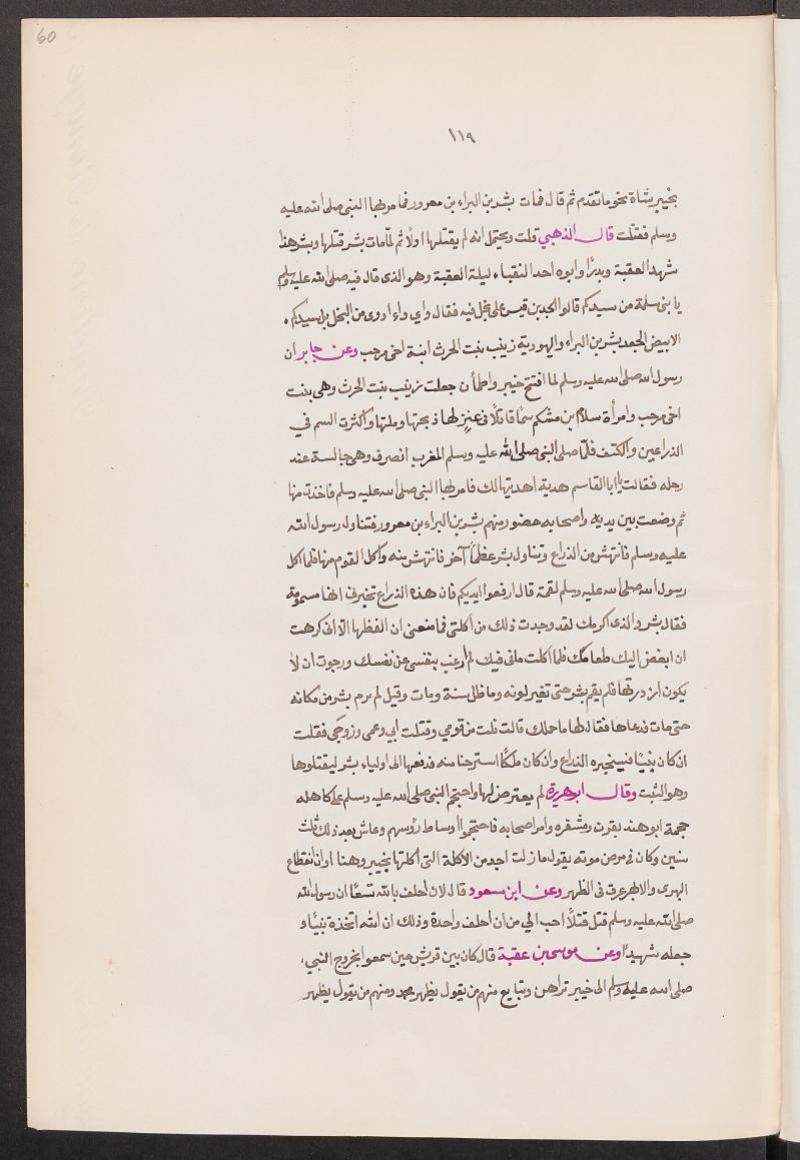 60
١١٩
بخيبر بشاة نحو ما تقدم ثم قال فمات بشر بن البراء بن معرور فامر بها النبى صلى الله عليه
وسلم فقتلت قال الذهبي قلت ويحتمل انه لم يقتلها اولاً ثم لمّا مات بشر قتلها وبشر هذا
شهد العقبة وبدرًا وابوه احد النقباء ليلة العقبة وهو الذى قال فيه صلى الله عليه وسلم
يا بنى سلمة من سيدكم قالوا الجد بن قيس على بخل فيه فقال واي داء ادوى من البخل بل سيدكم
الابيض الجعد بشر بن البراء واليهودية زينب بنت الحرث ابنة اخى مرحب وعن جابر ان
رسول الله صلى الله عليه وسلم لما افتتح خيبر واطمأن جعلت زينب بنت الحرث وهى بنت
اخى مرحب وامرأة سلام بن مشكم سمًا قاتلاً فى عنز لها ذبحتها وصلتها واكثرت السم في
الذراعين والكتف فلمّا صلى النبى صلى الله عليه وسلم المغرب انصرف وهى جالسة عند
رحله فقالت يا ابا القاسم هدية اهديتها لك فامر بها النبى صلى الله عليه وسلم فاخذت منها
ثم وضعت بين يديه واصحابه حضور منهم بشر بن البراء بن معرور فتناول رسول الله
عليه وسلم فانتهش من الذراع وتناول بشر عظماً آخر فانتهش منه واكل القوم منها فلما اكل
رسول الله صلى الله عليه وسلم لقمة قال ارفعوا ايديكم فان هذه الذراع تخبرنى انها مسمومة
فقال بشر والذى اكرمك لقد وجدت ذلك من أكلتى فما منعنى ان الفظها الا انى كرهت
ان ابغض اليك طعامك فلما اكلت ما فى فيك لم ارغب بنفسى عن نفسك ورجوت ان لا
يكون ازدرتها فلم يقم بشر حتى تغير لونه وما ظل سنة ومات وقيل لم يرم بشر من مكانه
حتى مات فدعاها فقال لها ما حملك قالت نلت من قومي وقتلت ابي وعمى وزوجى فقلت
ان كان نبيًا فسيخبره الذراع وان كان ملكًا استرحنا منه فدفعها الى اولياء بشر ليقتلوها
وهو الثبت وقال ابو هريرة لم يعترض لها واحتجم النبى صلى الله عليه وسلم على كاهله
حجمة ابو هند بقرن وشفره وامر اصحابه فاحتجموا اوساط رؤسهم وعاش بعد ذلك ثلث
سنين وكان فى مرض موته يقول ما زلت اجد من الأكلة التى اكلتها بخيبر وهنا اوان انقطاع
ابهرى والابهر عرق فى الظهر وعن ابن مسعود قال لان احلف بالله تسعًا ان رسول الله
صلى الله عليه وسلم قتل قتلاً احب الي من ان احلف واحدة وذلك ان الله اتخذه نبيًا و
جعله شهيدًا وعن موسى بن عقبة قال كان بين قريش حين سمعوا بخروج النبي
صلى الله عليه وسلم الى خيبر تراهن وتبايع منهم من يقول يظهر محمد ومنهم من يقول يظهر